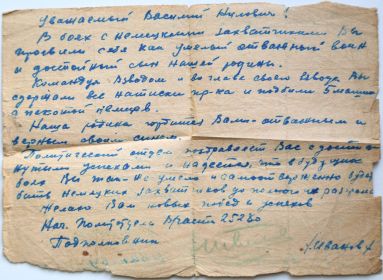 Уважаемый Василий Нилович!
В боях с немецкими захватчиками Вы
проявили себя как умелый отважный воин
и достойный сын нашей родины.
Командуя взводом и во главе своего взвода Вы
сдержали все натиски пр-ка и подбили 5 машин
с пехотой немцев.
Наша родина гордится Вами отважным и
верным своим сыном.
Политический отдел поздравляет Вас с достиг
нутыми успехами и надеется, что в будущих
боях Вы так же умело и самоотверженно будете
бить немецких захватчиков до полного их разгрома
Желаю Вам новых побед и успехов
Нач. Политотдела В/части 25280
Подполковник Иванов